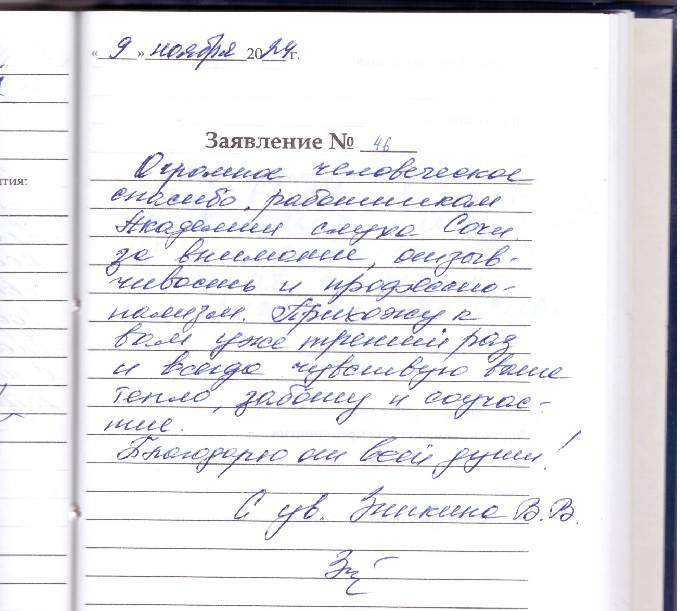 « 9 » ноября 2024 г.
Заявление № 46
Огромное человеческое
спасибо, работникам
Академии слуха Сочи,
за внимание, отзыв-
чивость и профессио-
нализм. Прихожу к
вам уже третий раз
и всегда чувствую ваше
тепло, заботу и соучас-
тие.
Благодарю от всей души!
С ув. В.В.
тия: